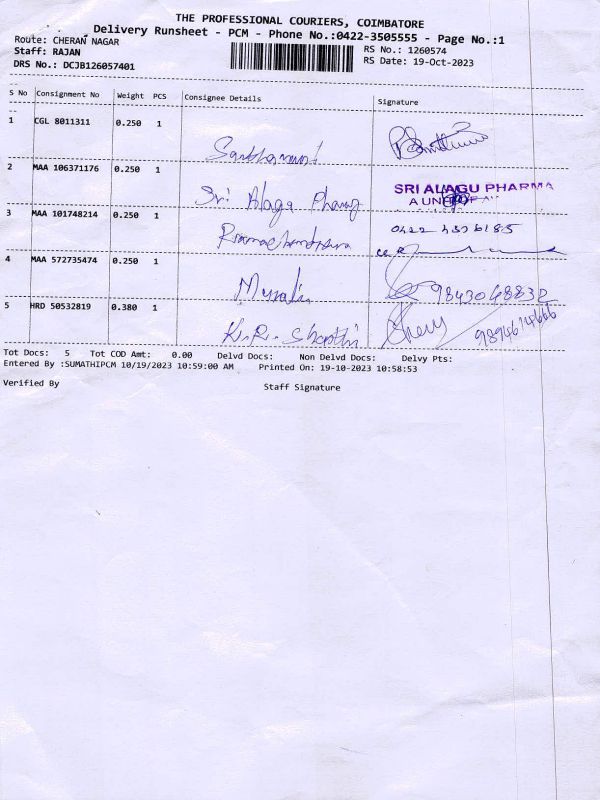 THE PROFESSIONAL COURIERS, COIMBATORE
Delivery Runsheet - PCM - Phone No.:0422-3505555 - Page No.:1
Route: CHERAN NAGAR
RS No.: 1260574
Staff: RAJAN
RS Date: 19-Oct-2023
DRS No.: DCJB126057401
S No Consignment No Weight PCS Consignee Details Signature
1 CGL 8011311 0.250 1
2 MAA 106371176 0.250 1 Sri Alaga
SRI ALAGU PHARMA
3 MAA 101748214 0.250 1 Ramachandran
4 MAA 572735474 0.250 1 Murali 9843048832
5 HRD 50532819 0.380 1 K.R. Shapthi 9894674666
Tot Docs: 5 Tot COD Amt: 0.00 Delvd Docs: Non Delvd Docs: Delvy Pts:
Entered By :SUMATHIPCM 10/19/2023 10:59:00 AM Printed On: 19-10-2023 10:58:53
Verified By Staff Signature